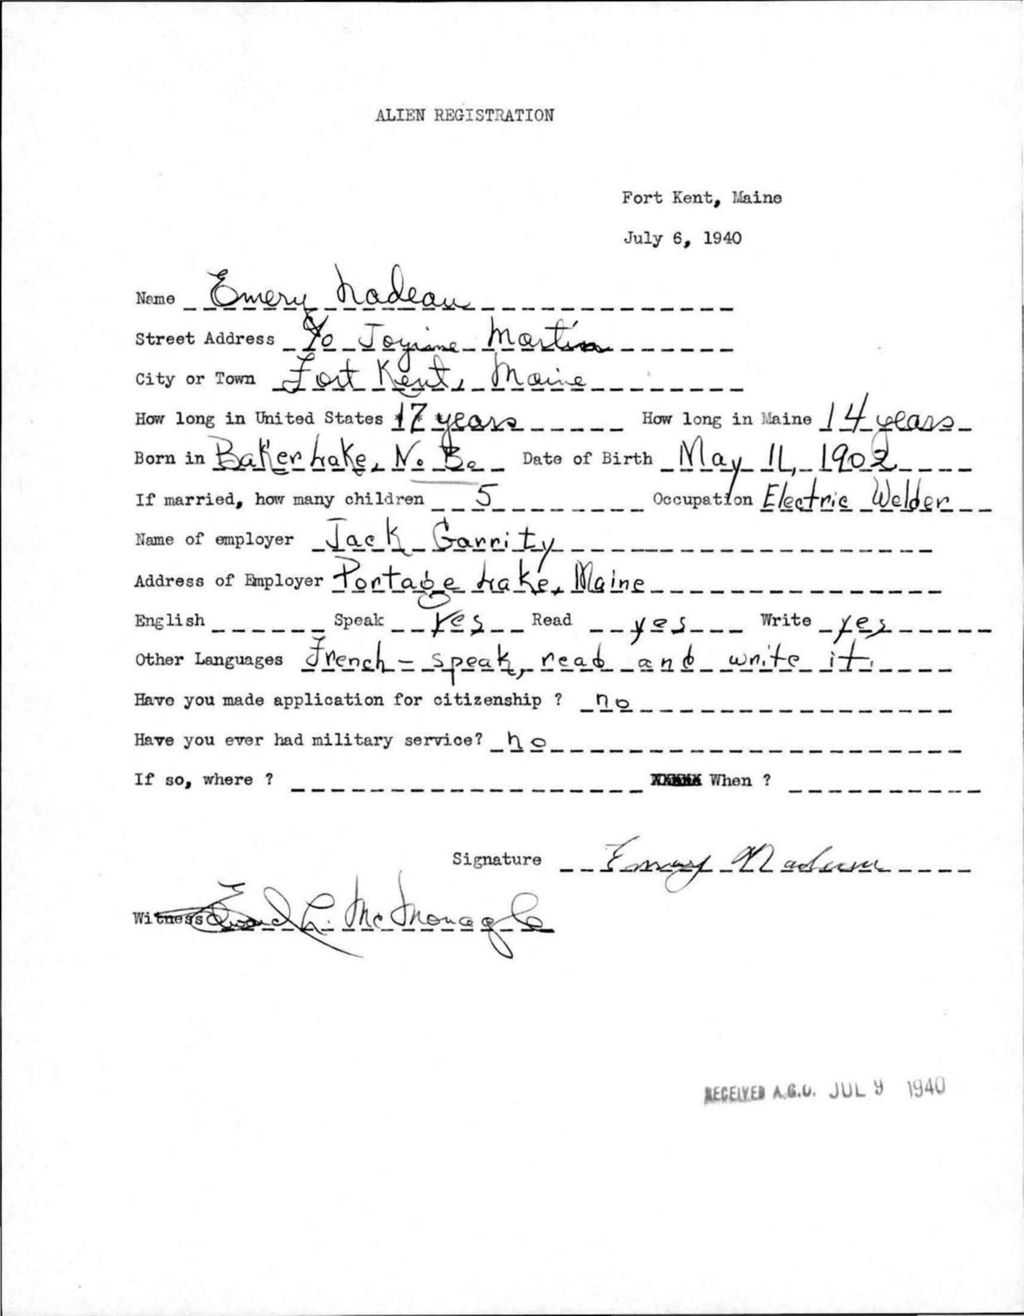 ALIEN REGISTRATION
Fort Kent, Maine
July 6, 1940
Name Emery Nadeau
Street Address c/o Martin
City or Town Fort Kent, Maine
How long in United States 17 years How long in Maine 14 years
Born in Baker Lake, N. B. Date of Birth May 11, 1902
If married, how many children 5 Occupation Electric Welder
Name of employer Jack Garrity
Address of Employer Portage Lake, Maine
English Speak Yes Read yes Write yes
Other Languages French - speak, read and write it.
Have you made application for citizenship ? no
Have you ever had military service? no
If so, where ? When ?
Signature Emery Nadeau
Witness L. McMonagle
RECEIVED A.G.O. JUL 9 1940